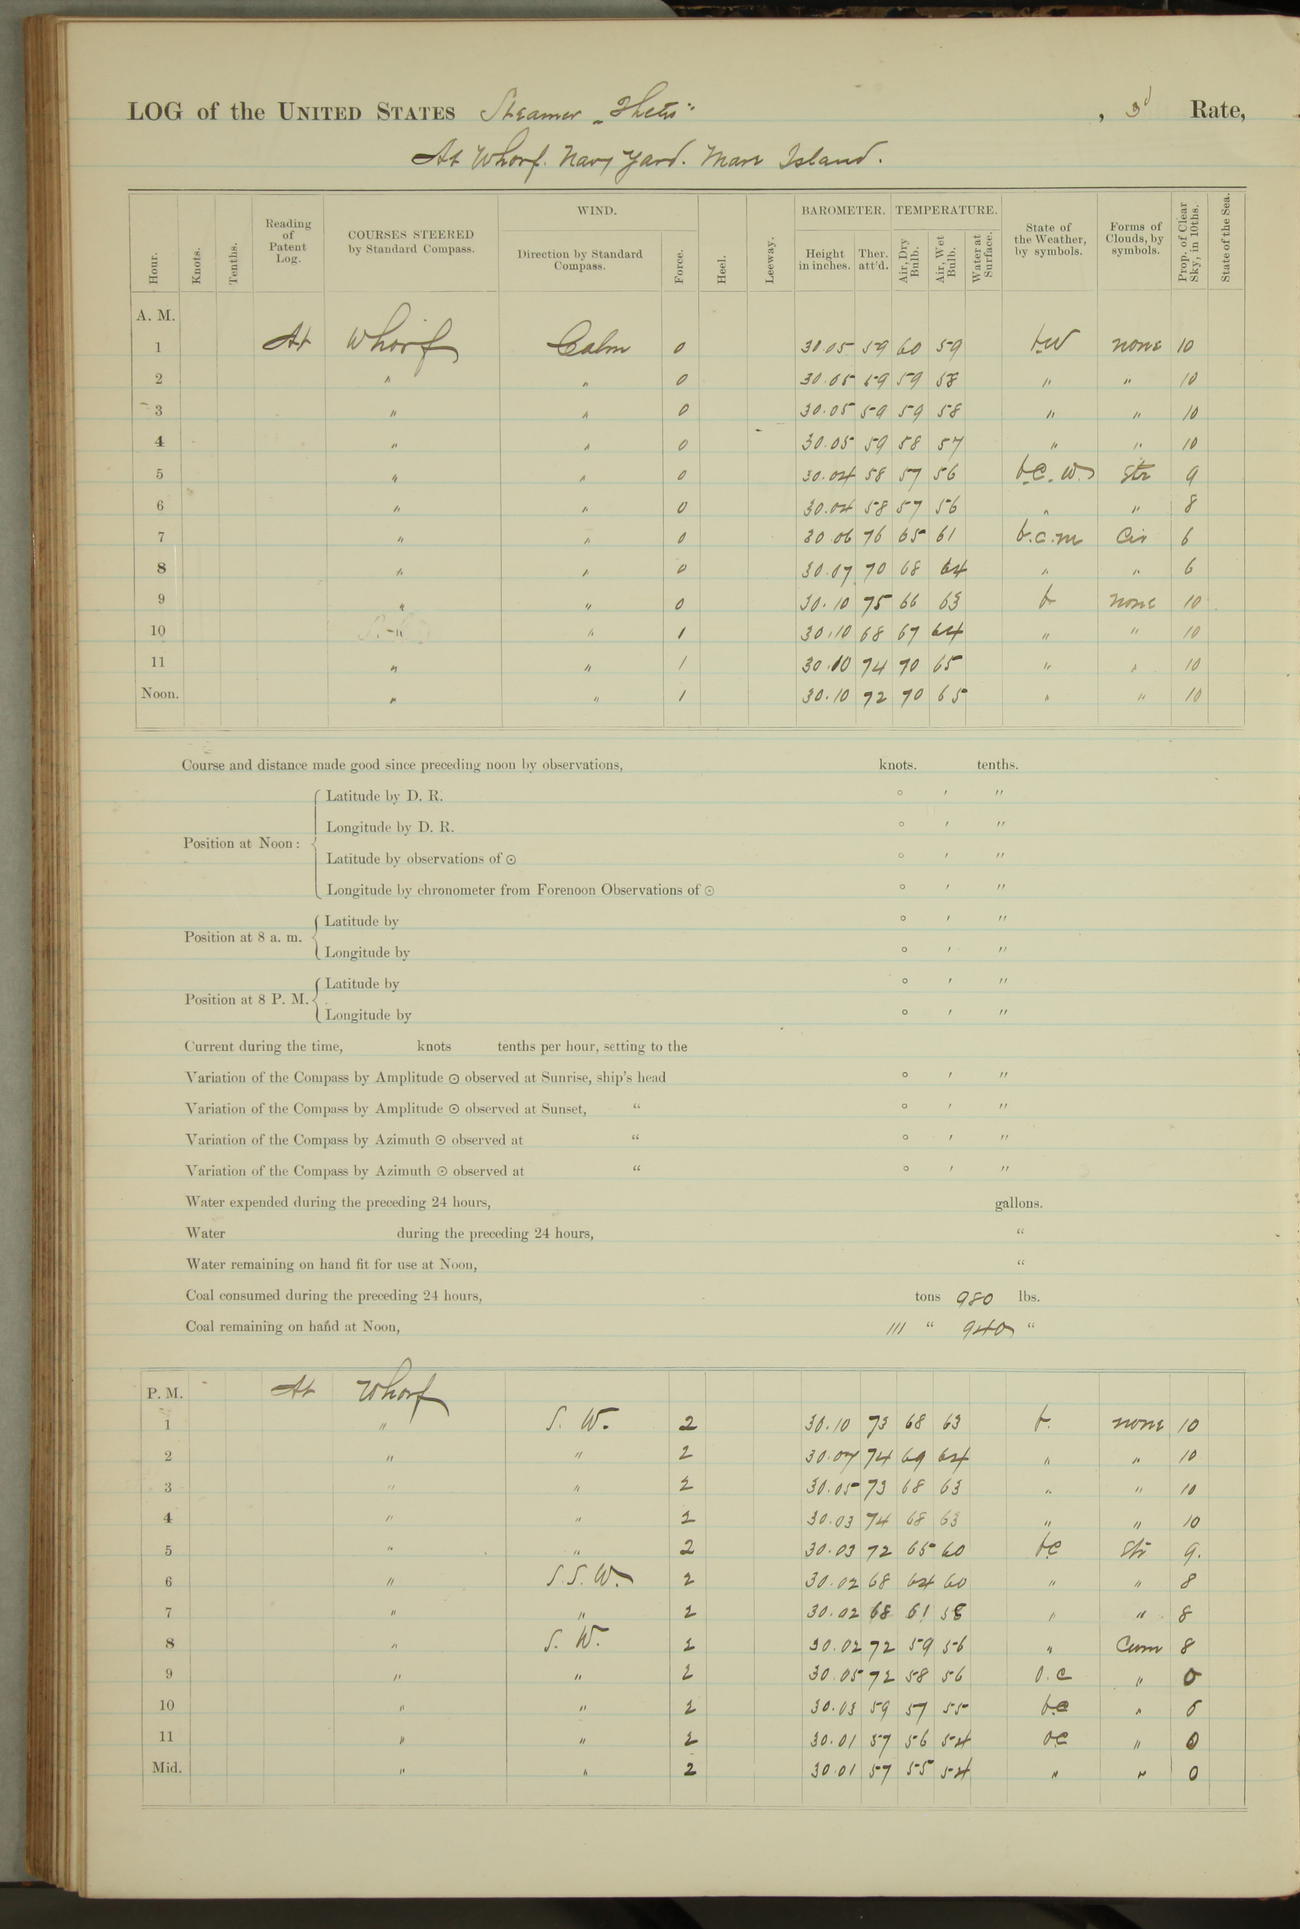 LOG of the UNITED STATES Steamer "Thetis" , 3d Rate,
At Wharf. Navy Yard. Mare Island.
Hour. Knots. Tenths. Reading of Patent Log. COURSES STEERED by Standard Compass. WIND. Direction by Standard Compass. Force. Heel. Leeway. BAROMETER. Height in inches. Ther. att'd. TEMPERATURE. Air, Dry Bulb. Air, Wet Bulb. Water at Surface. State of the Weather, by symbols. Forms of Clouds, by symbols. Prop. of Clear Sky, in 10ths. State of the Sea.
A. M.
1 At Wharf Calm 0 30.05 59 60 59 b.W none 10
2 " " 0 30.05 59 59 58 " " 10
3 " " 0 30.05 59 59 58 " " 10
4 " " 0 30.05 59 58 57 " " 10
5 " " 0 30.04 58 57 56 b.C.W. Str 9
6 " " 0 30.04 58 57 56 " " 8
7 " " 0 30.06 76 65 61 b.c.m Cir 6
8 " " 0 30.07 70 68 64 " " 6
9 " " 0 30.10 75 66 63 b none 10
10 " " 1 30.10 68 67 64 " " 10
11 " " 1 30.10 74 70 65 " " 10
Noon. " " 1 30.10 72 70 65 " " 10
Course and distance made good since preceding noon by observations, knots. tenths.
Position at Noon: Latitude by D. R. ° ′ ″
Longitude by D. R. ° ′ ″
Latitude by observations of ⊙ ° ′ ″
Longitude by chronometer from Forenoon Observations of ⊙ ° ′ ″
Position at 8 a. m. Latitude by ° ′ ″
Longitude by ° ′ ″
Position at 8 P. M. Latitude by ° ′ ″
Longitude by ° ′ ″
Current during the time, knots tenths per hour, setting to the
Variation of the Compass by Amplitude ⊙ observed at Sunrise, ship's head ° ′ ″
Variation of the Compass by Amplitude ⊙ observed at Sunset, " ° ′ ″
Variation of the Compass by Azimuth ⊙ observed at " ° ′ ″
Variation of the Compass by Azimuth ⊙ observed at " ° ′ ″
Water expended during the preceding 24 hours, gallons.
Water during the preceding 24 hours, "
Water remaining on hand fit for use at Noon, "
Coal consumed during the preceding 24 hours, tons 980 lbs.
Coal remaining on hand at Noon, 111 " 940 "
P. M. At Wharf
1 " S. W. 2 30.10 73 68 63 b. none 10
2 " " 2 30.07 74 69 64 " " 10
3 " " 2 30.05 73 68 63 " " 10
4 " " 2 30.03 74 68 63 " " 10
5 " " 2 30.03 72 65 60 bc Str 9.
6 " S.S.W. 2 30.02 68 64 60 " " 8
7 " " 2 30.02 68 61 58 " " 8
8 " S. W. 2 30.02 72 59 56 " Cum 8
9 " " 2 30.05 72 58 56 O.C " 0
10 " " 2 30.03 59 57 55 bc " 6
11 " " 2 30.01 57 56 54 OC " 0
Mid. " " 2 30.01 57 55 54 " " 0